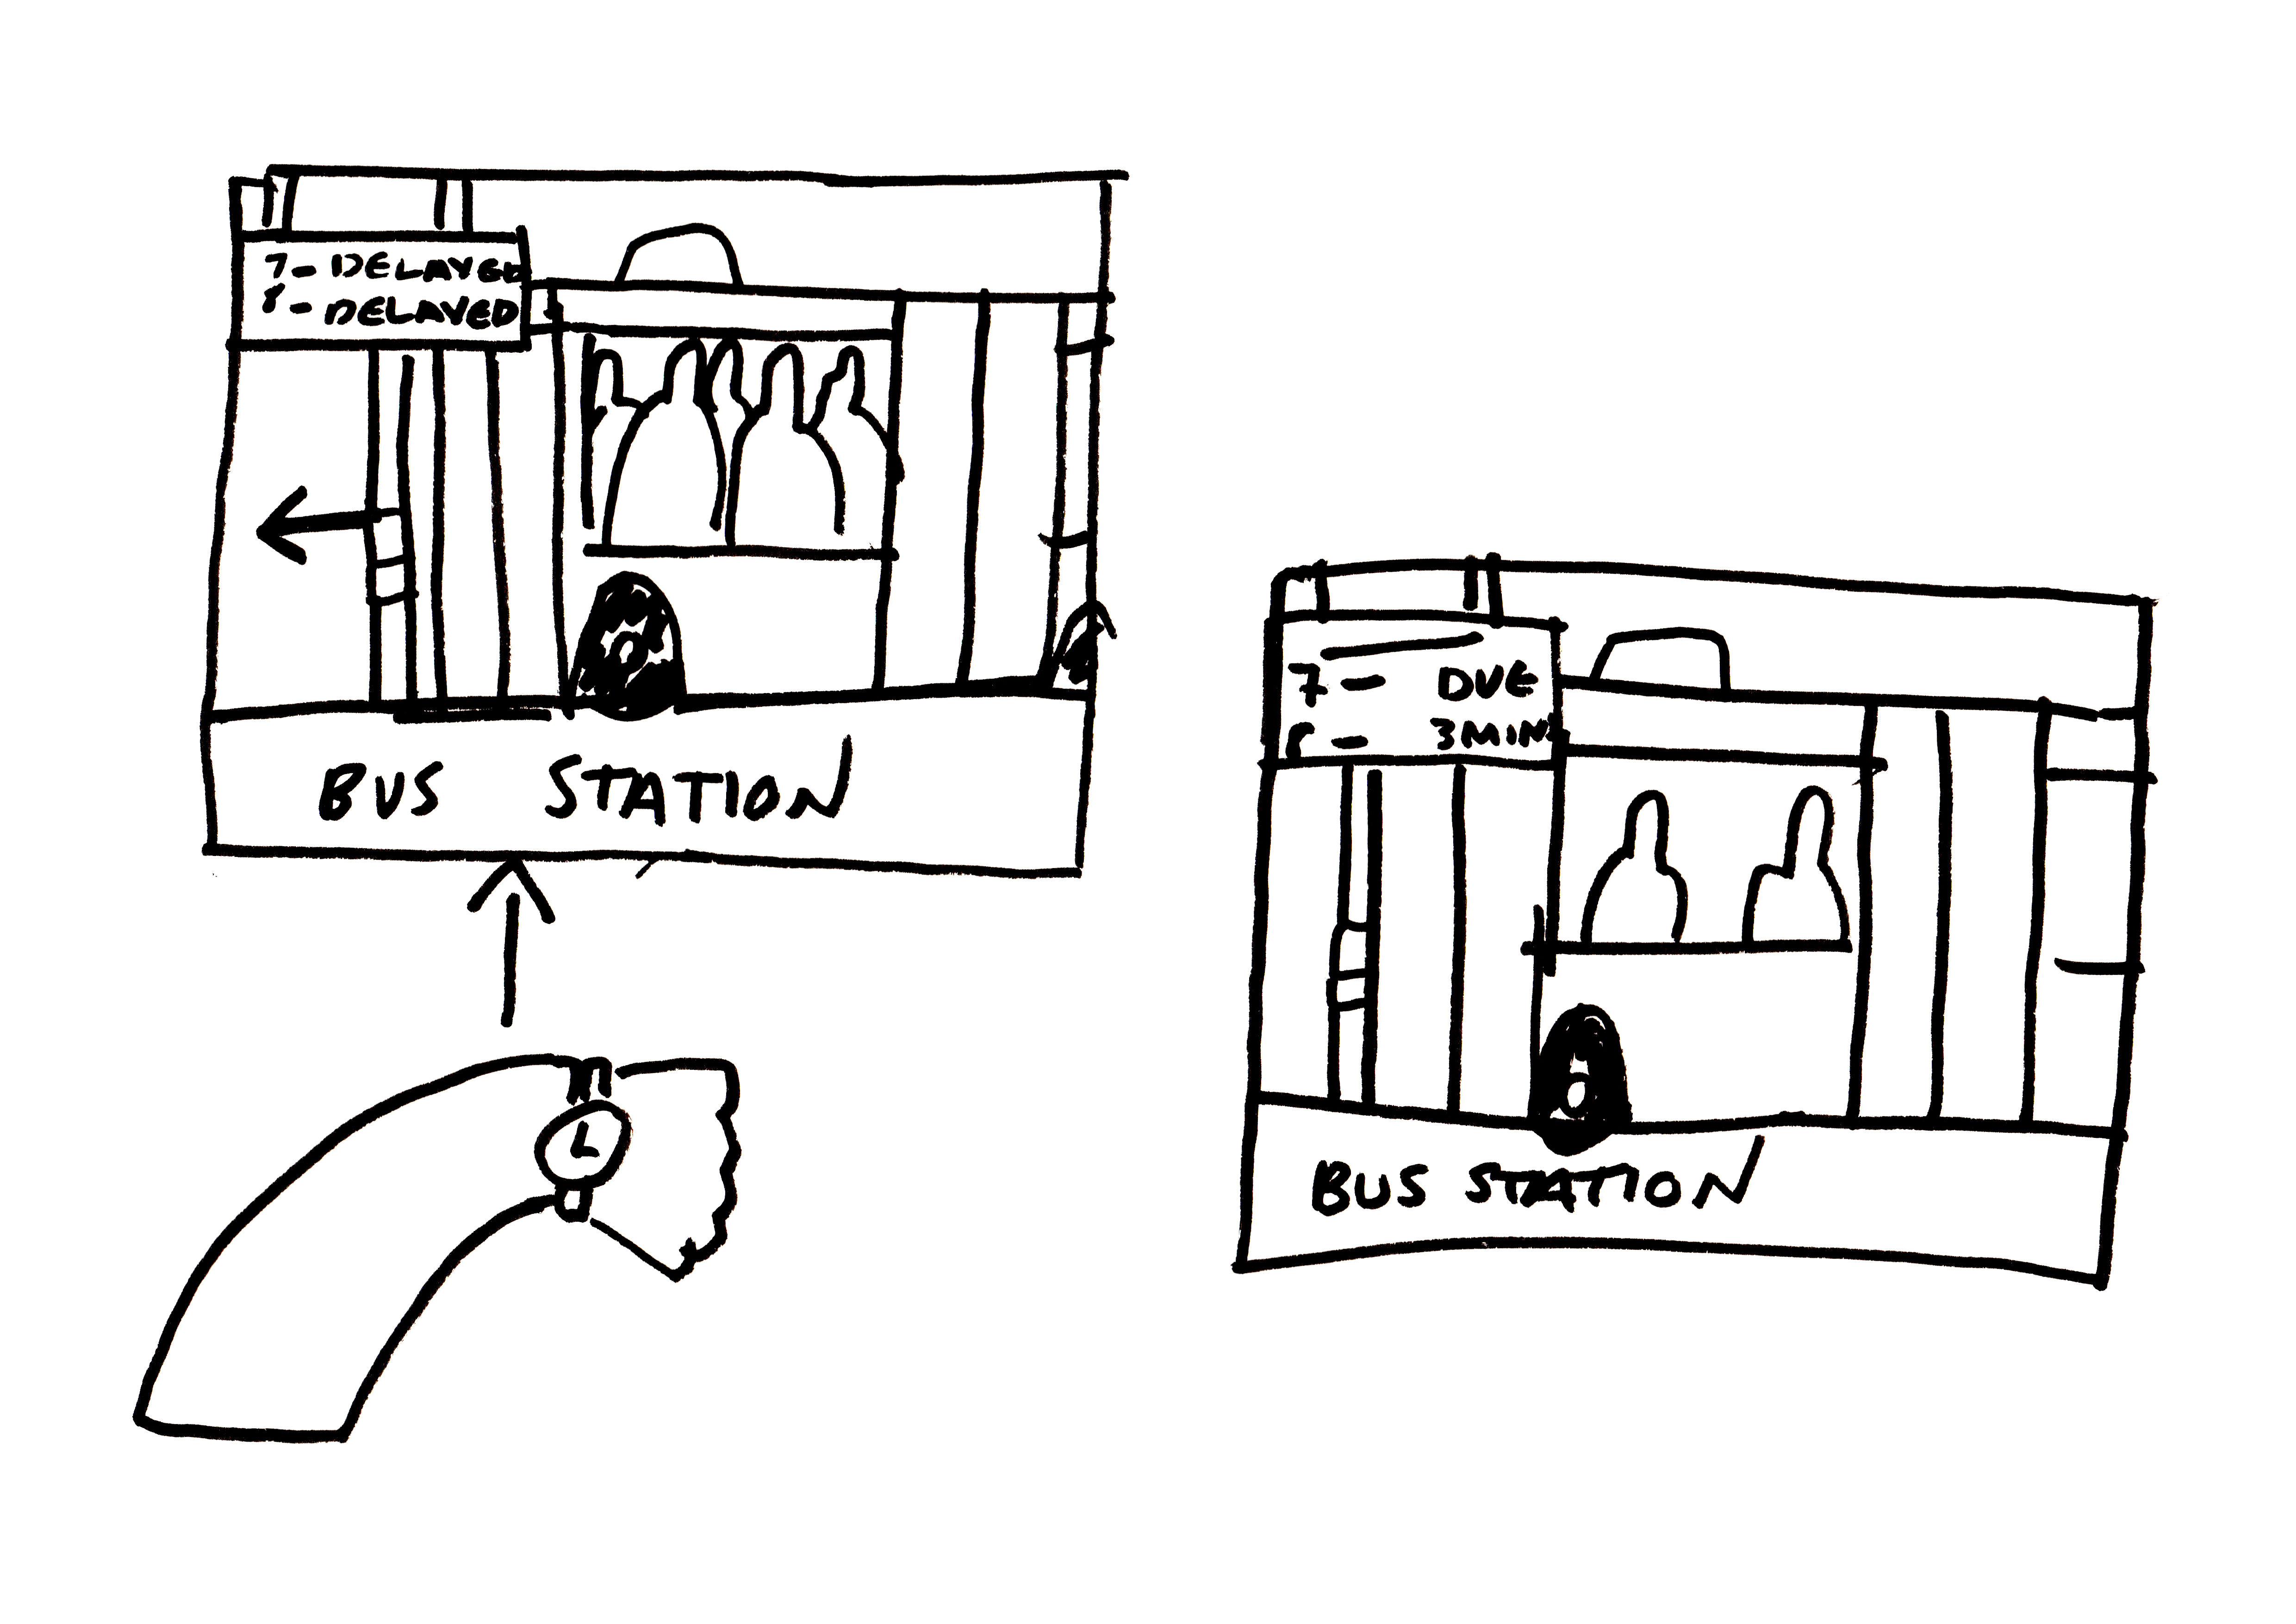 7- DELAYED
8- DELAYED
BUS STATION
7- DUE
8- 3 MINS
BUS STATION